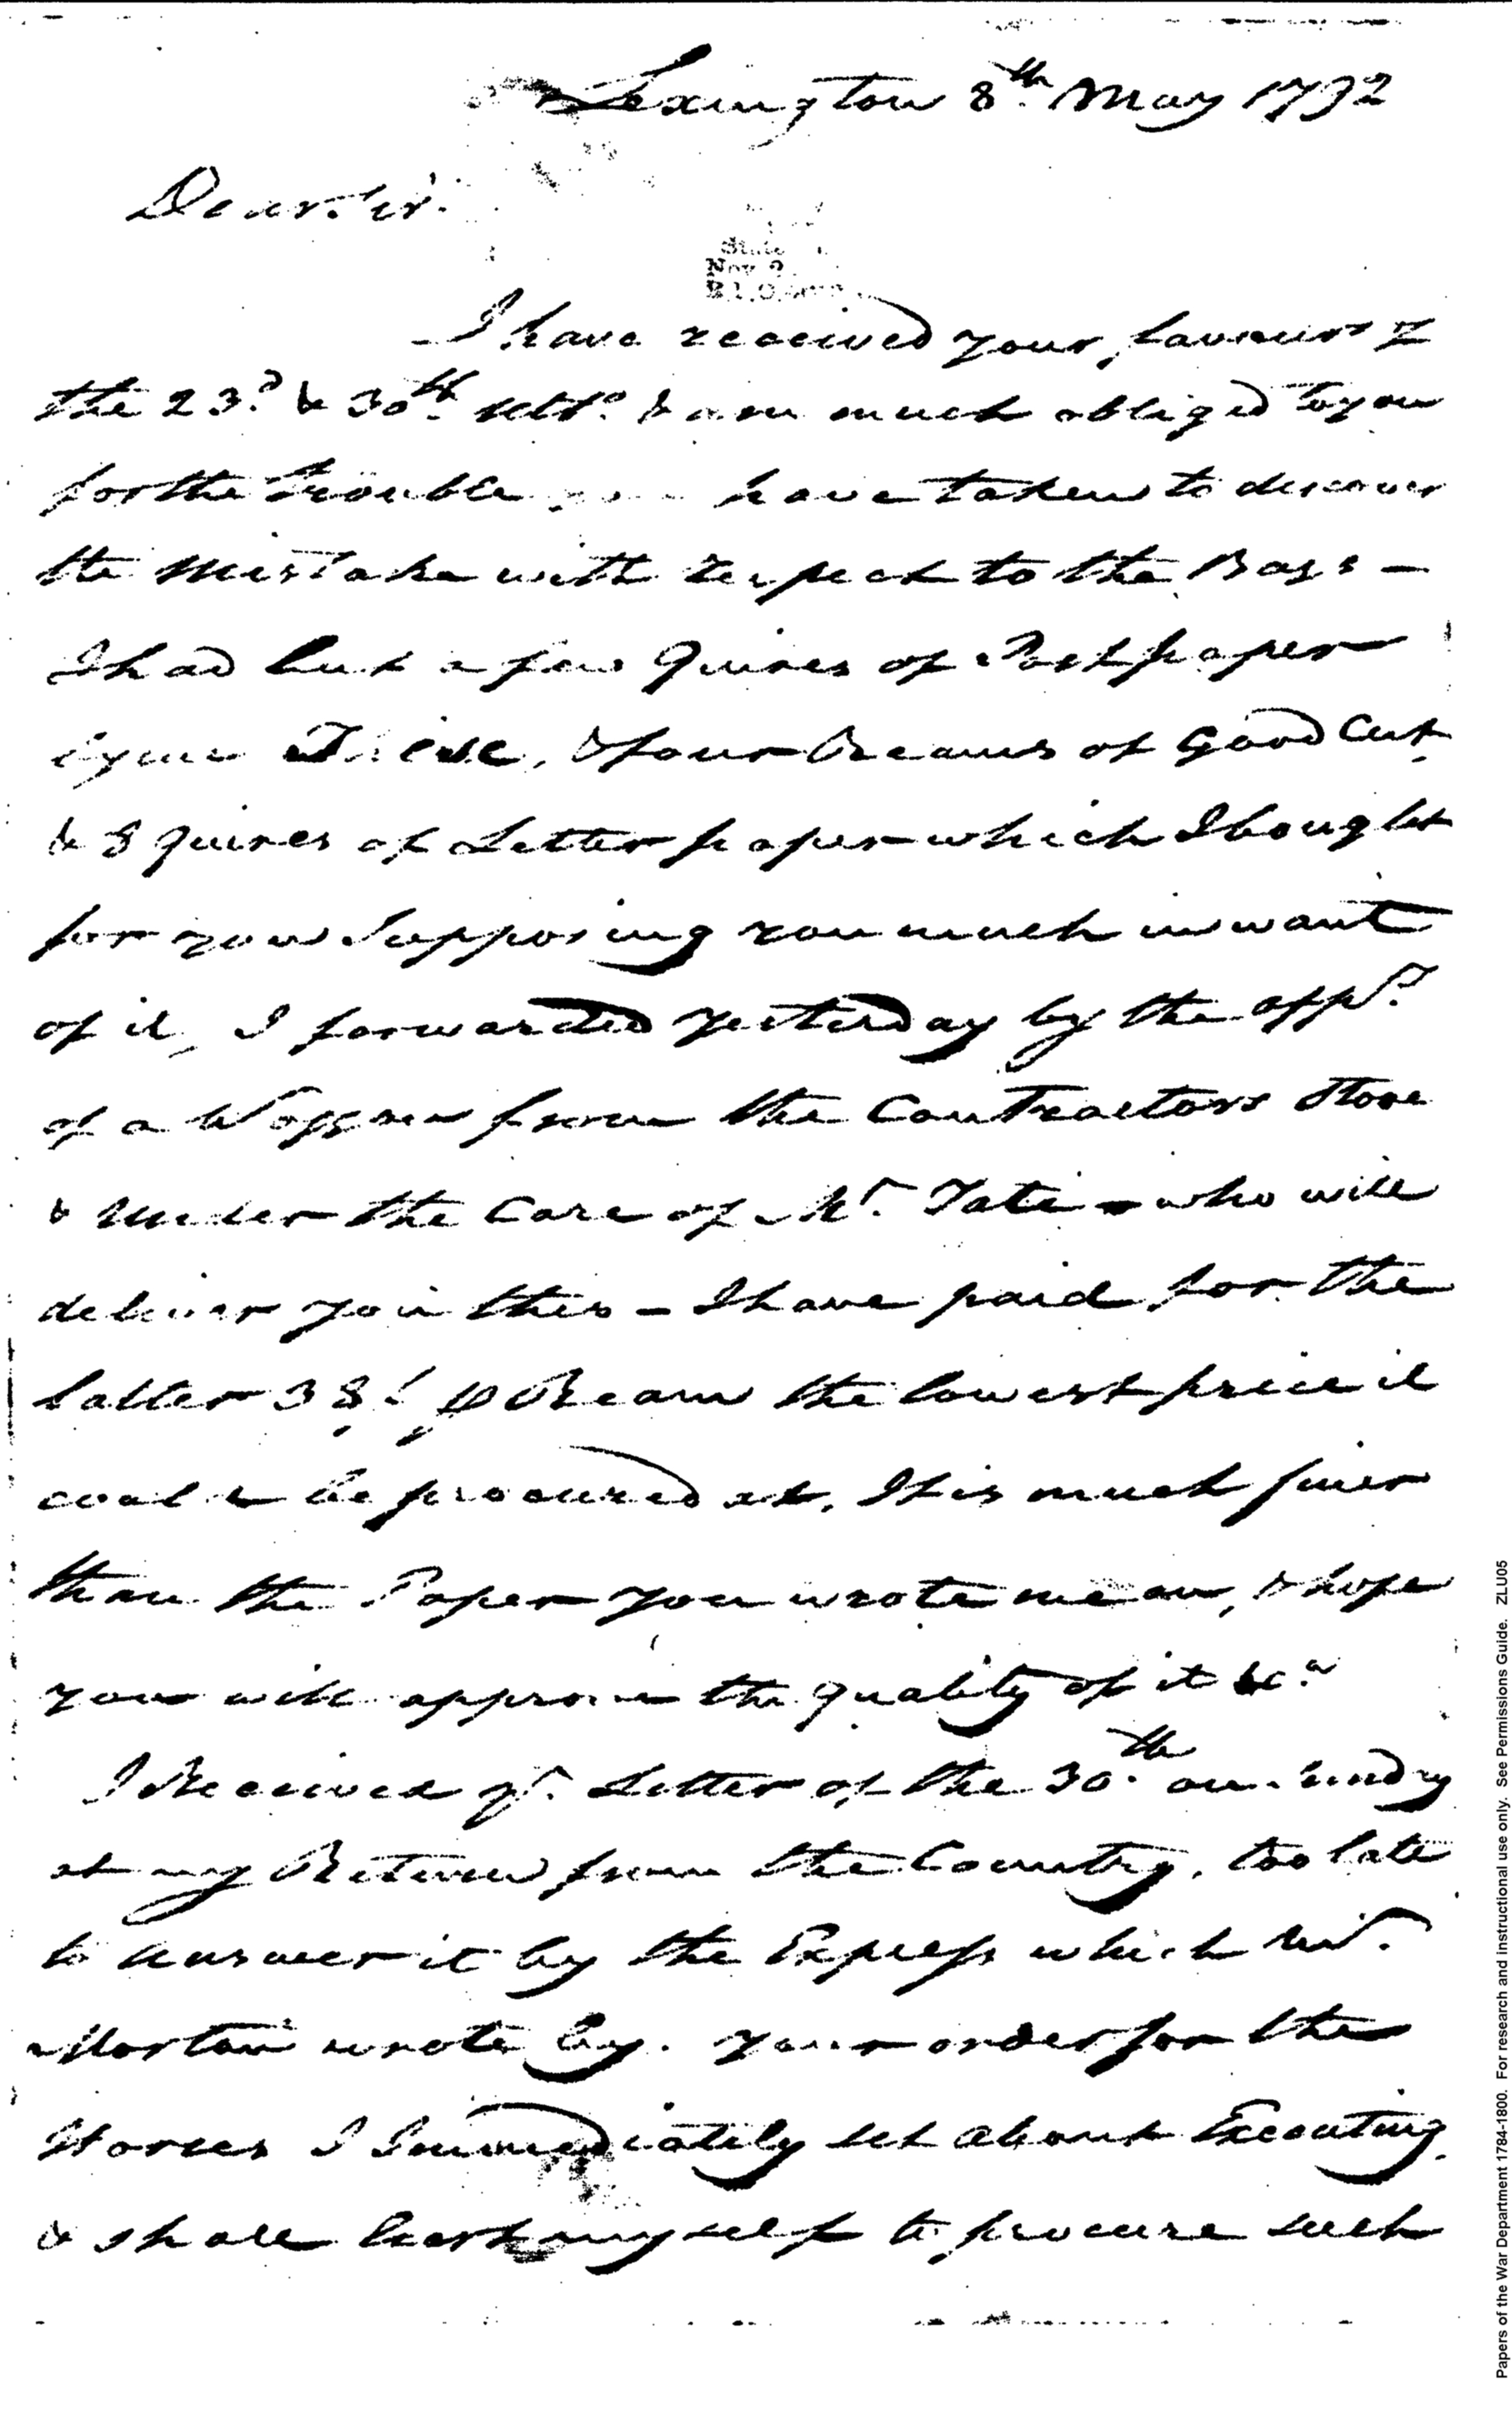 Lexington 8th. May 1792
Dear Sir.
I have received your favours of
the 23d. & 30th. ulto. & am much obliged to you
for the Trouble you have taken to discover
the Mistake with respect to the Bags —
I had but a few Quires of Post paper
& four Reams of Good Cut
& 8 quires of Letter paper which I bought
for you Supposing you much in want
of it, I forwarded yesterday by the oppy.
of a Waggon from the Contractors Store
& under the Care of Mr. Tate - who will
deliver you this — I have paid for the
latter 38/. p Ream the lowest price it
could be procured at, It is much finer
than the Paper you wrote me on, & hope
you will approve the quality of it &c.a
I Received yr. Letter of the 30.th on Sunday
at my Return from the Country, too late
to answer it by the Express which Mr.
Morton wrote by. Your order for the
Horses I Immediately set about Executing
& shall exert myself to procure such
State
Nov 9
Papers of the War Department 1784-1800. For research and instructional use only. See Permissions Guide. ZLU05